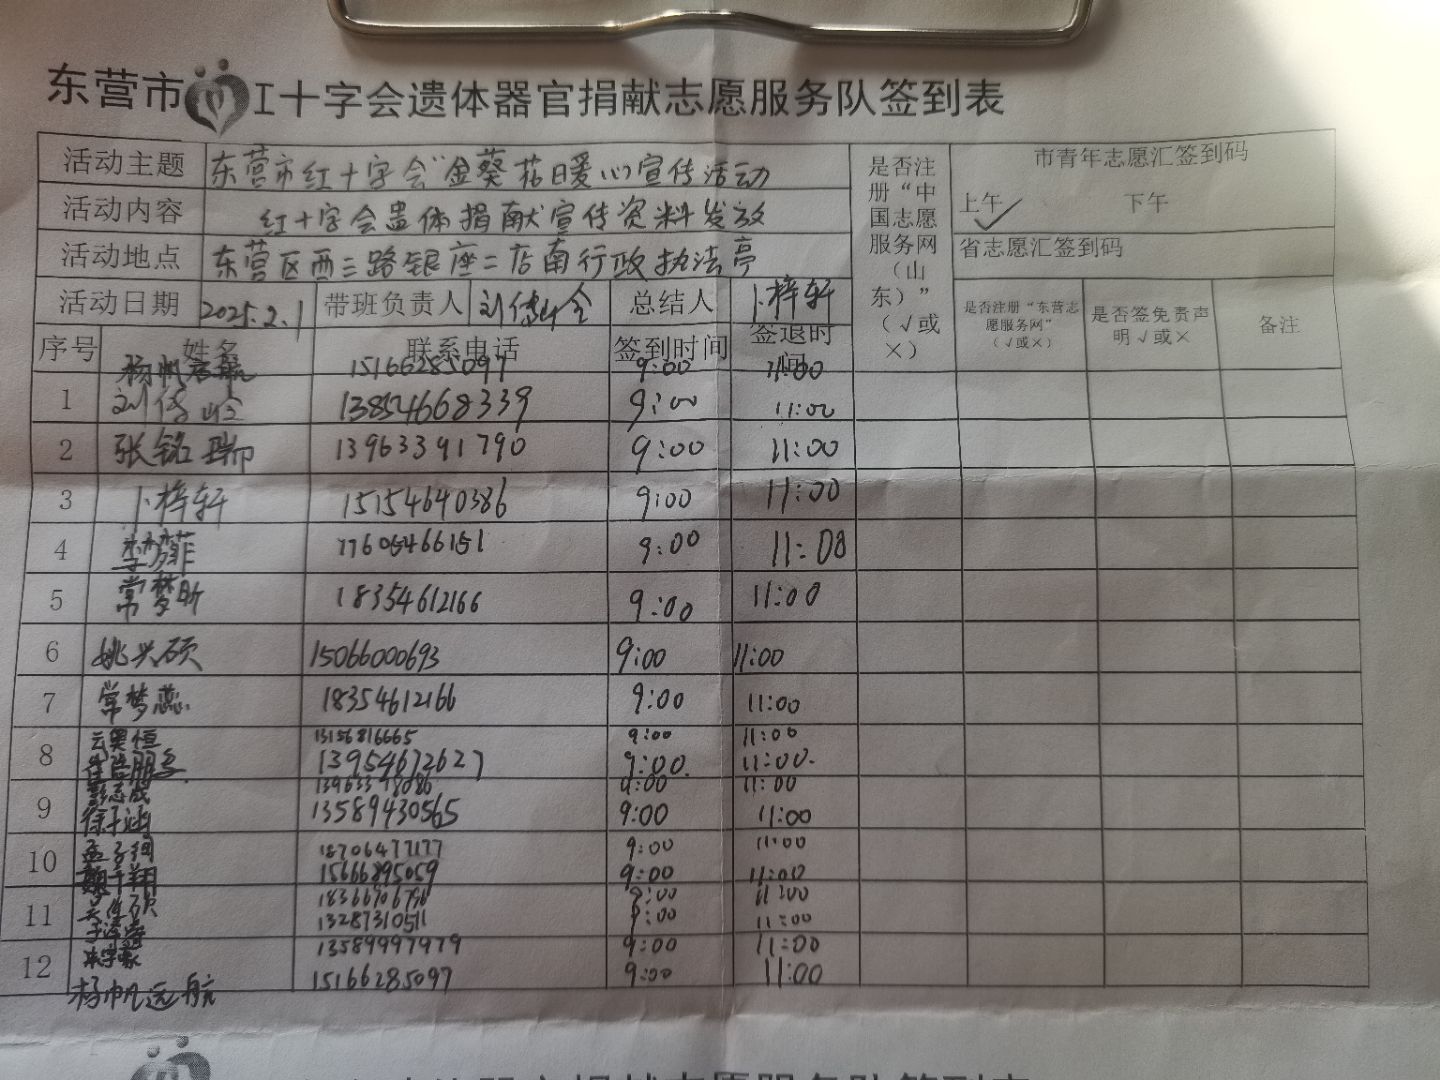 东营市 工十字会遗体器官捐献志愿服务队签到表
活动主题 东营市红十字会“金葵花暖心宣传活动 是否注册“中国志愿服务网（山东）”（√或×） 市青年志愿汇签到码
上午 ✓ 下午
活动内容 红十字会遗体捐献宣传资料发放
省志愿汇签到码
活动地点 东营区西三路银座二店南行政执法亭
活动日期 2025.2.1 带班负责人 总结人 卜梓轩 是否注册“东营志愿服务网”（√或×） 是否签免责声明√或× 备注
序号 姓名 联系电话 签到时间 签退时间
杨帆远航 15166285097 9:00 11:00
1 13854668339 9:00 11:00
2 张铭瑞 13963391790 9:00 11:00
3 卜梓轩 15154640386 9:00 11:00
4 李梦菲 17605466151 9:00 11:00
5 常梦昕 18354612166 9:00 11:00
6 姚兴硕 15066000693 9:00 11:00
7 常梦蕊 18354612166 9:00 11:00
8 云昊恒 13156816665 9:00 11:00
13954672627 9:00. 11:00.
彭志成 9:00 11:00
9 徐子涵 13589430565 9:00 11:00
10 18706477177 9:00 11:00
魏子翔 15666895059 9:00 11:00
11 9:00 11:00
13287310511 9:00 11:00
12 13589997979 9:00 11:00
杨帆远航 15166285097 9:00 11:00